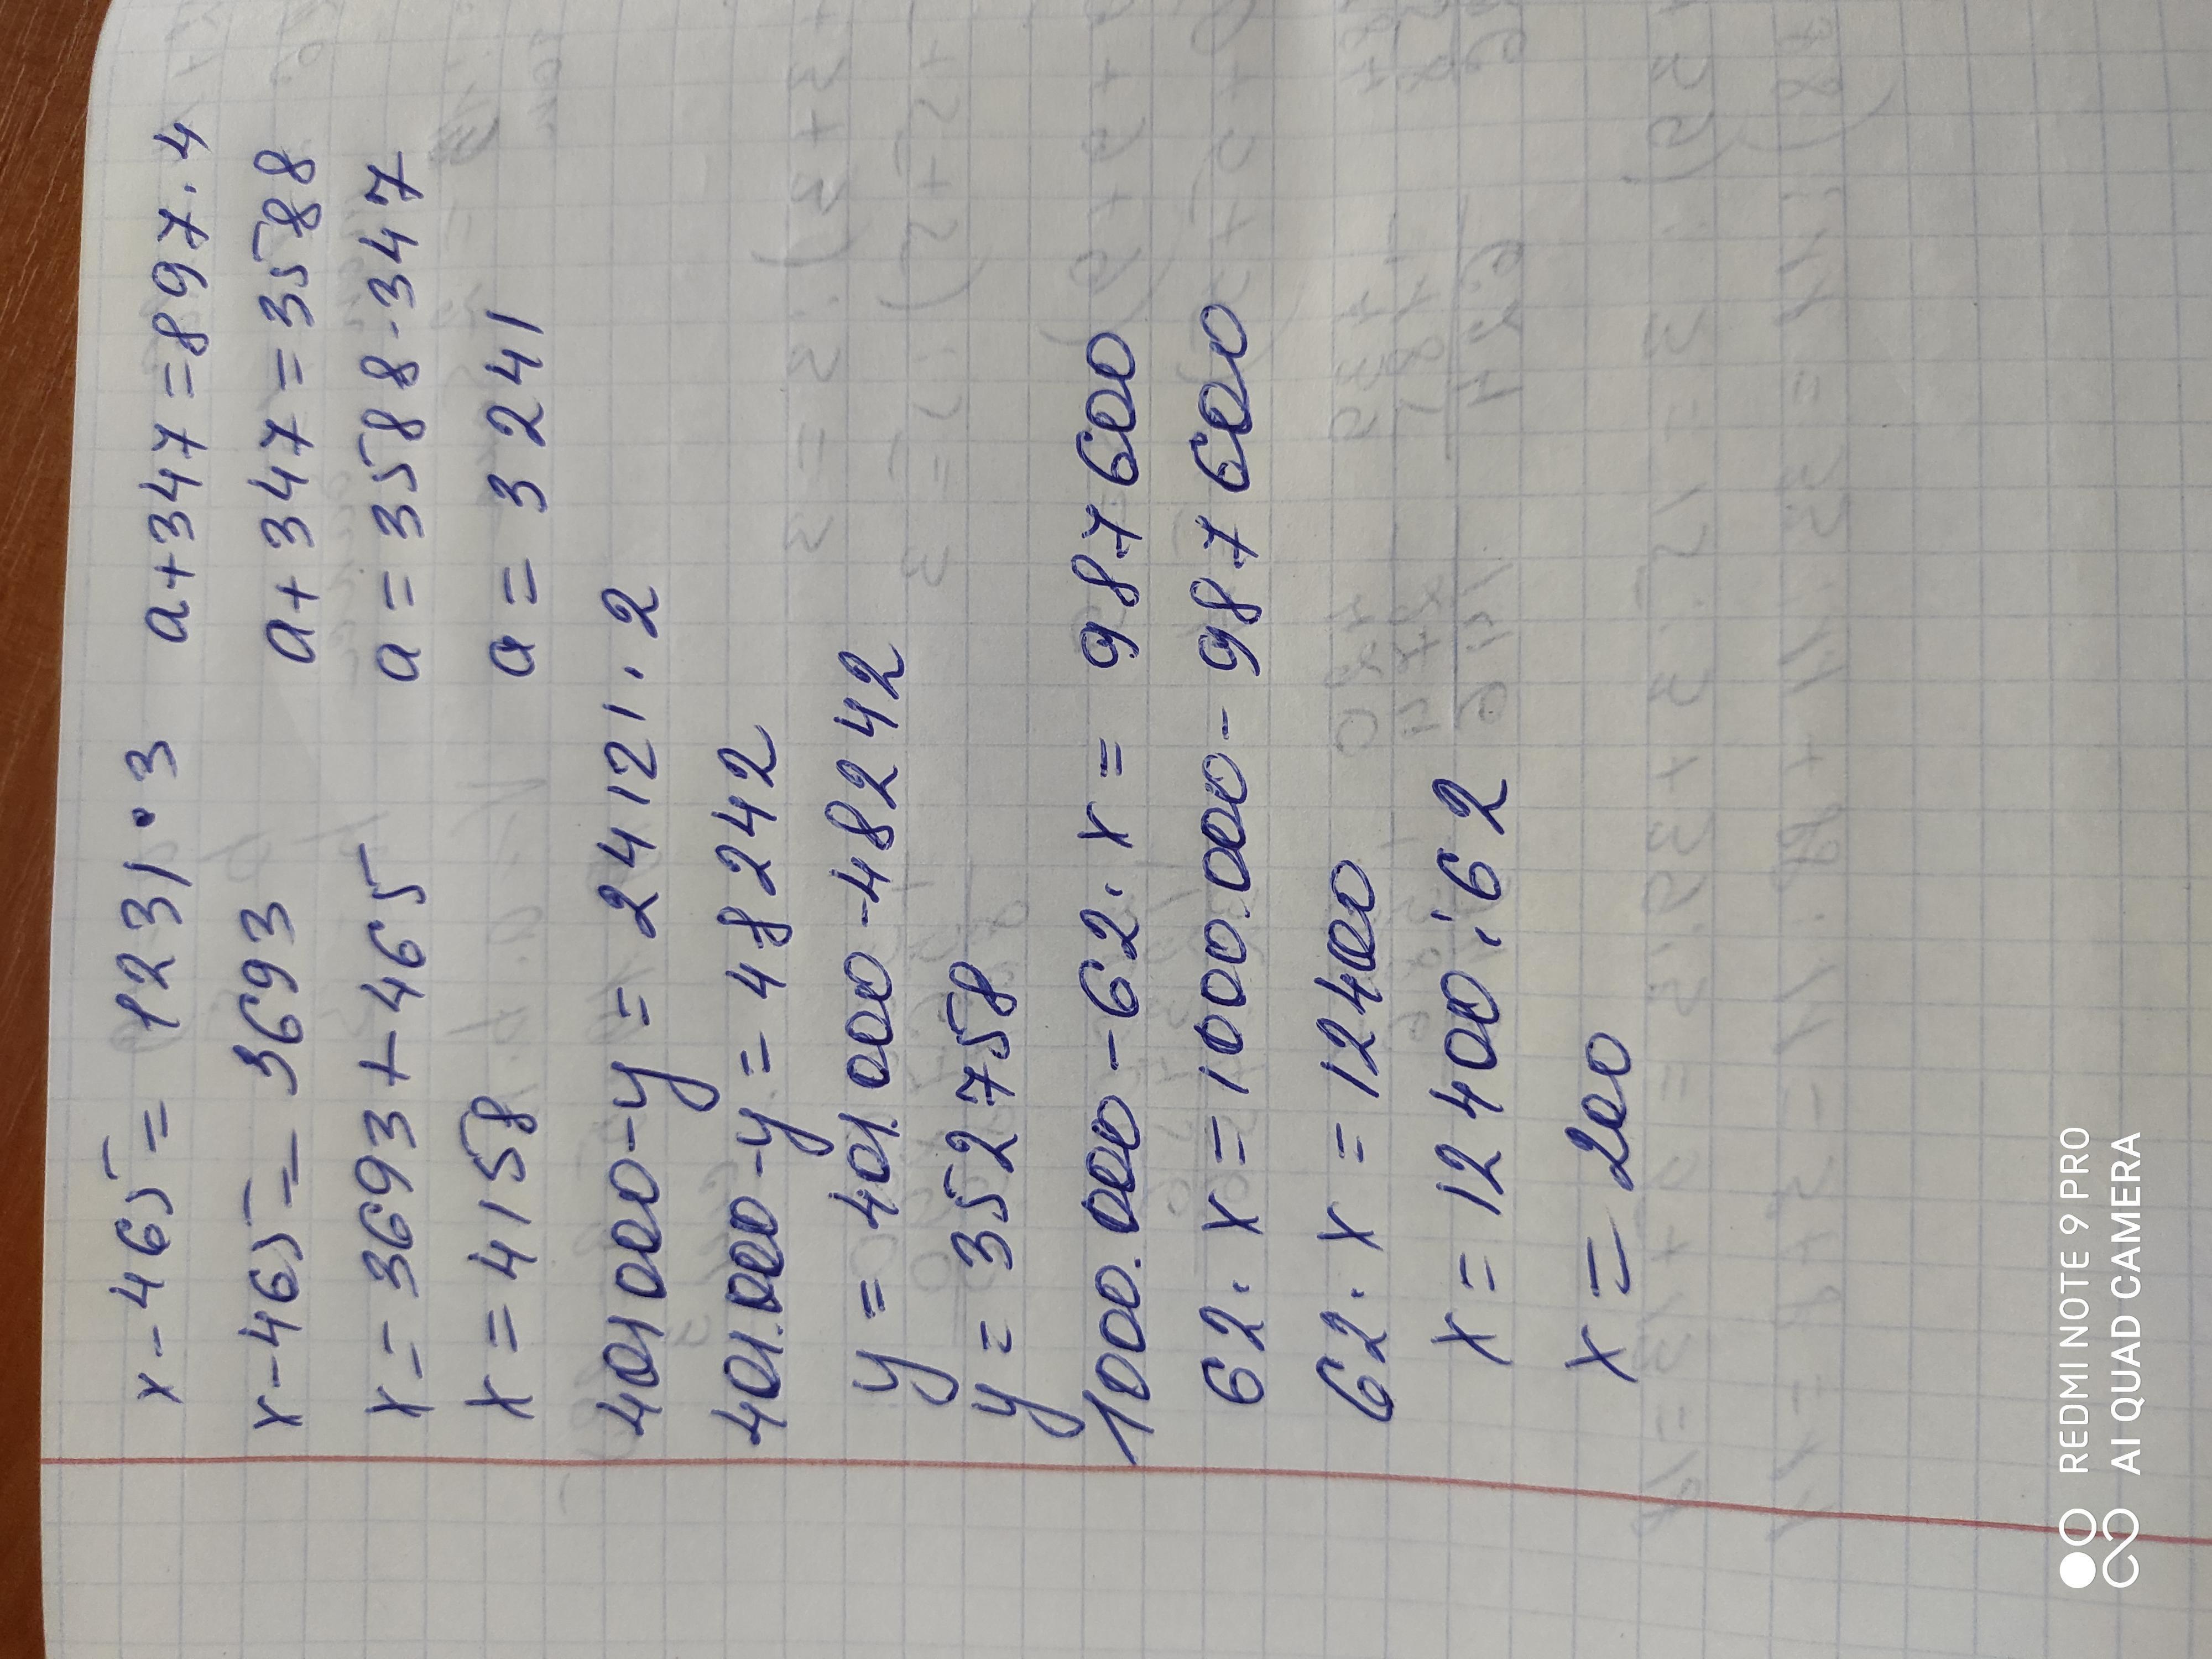 x-465= 1231•3
x-465= 3693
x=3693+465
x=4158
a+347=897·4
a+347=3588
a=3588-347
a= 3241
401000-y= 24121·2
401.000-y=48242
y=401.000-48242
y= 352758
1000.000-62·x= 987600
62·x=1000.000-987600
62·x=12400
x=12400:62
x=200
REDMI NOTE 9 PRO
AI QUAD CAMERA